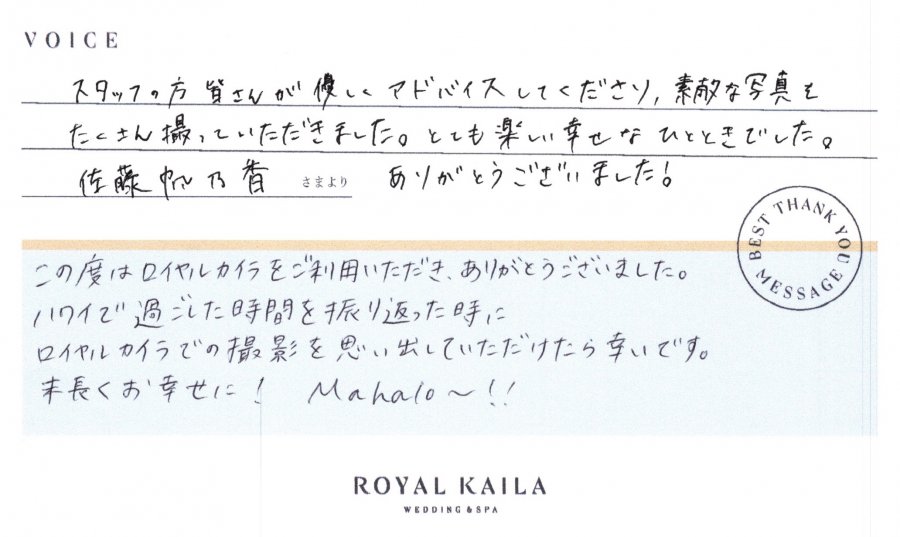 VOICE
スタッフの方皆さんが優しくアドバイスしてくださり、素敵な写真を
たくさん撮っていただきました。とても楽しい幸せなひとときでした。
佐藤帆乃香 さまより ありがとうございました!
BEST THANK YOU MESSAGE
この度はロイヤルカイラをご利用いただき、ありがとうございました。
ハワイで過ごした時間を振り返った時に
ロイヤルカイラでの撮影を思い出していただけたら幸いです。
末長くお幸せに! Mahalo〜!!
ROYAL KAILA
WEDDING & SPA